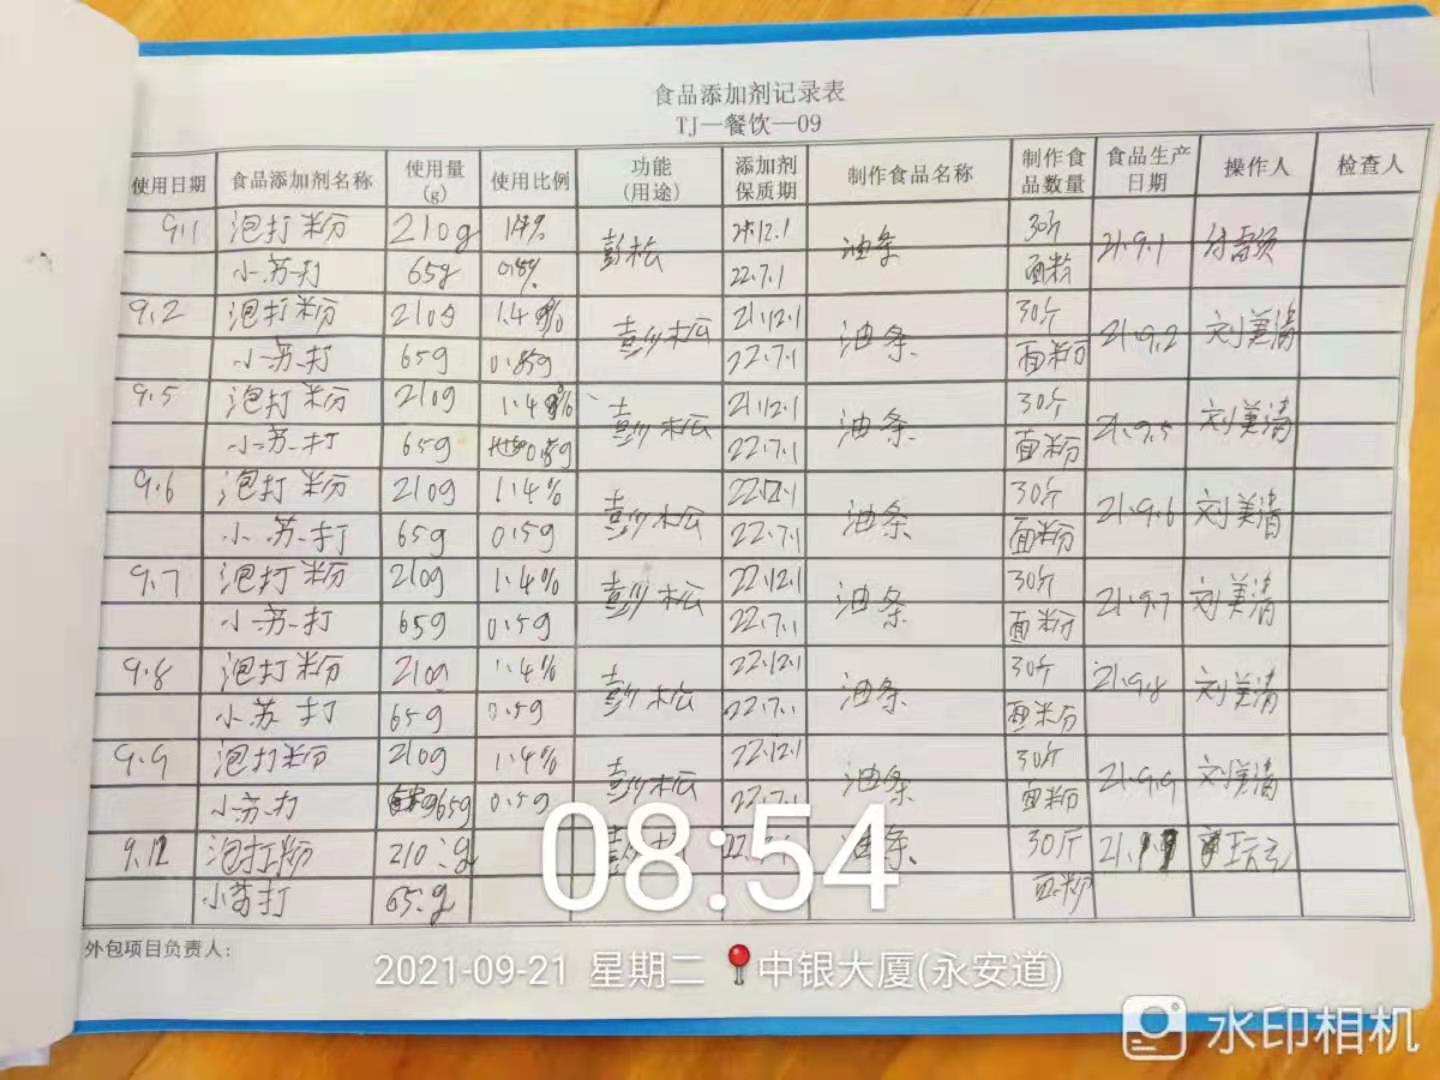 食品添加剂记录表
TJ—餐饮—09
使用日期 食品添加剂名称 使用量(g) 使用比例 功能(用途) 添加剂保质期 制作食品名称 制作食品数量 食品生产日期 操作人 检查人
9.1 泡打粉 210g 彭松 21.12.1 油条 30斤 21.9.1
小苏打 65g 22.7.1 面粉
9.2 泡打粉 210g 1.4% 彭松 21.12.1 油条 30斤 21.9.2 刘美清
小苏打 65g 22.7.1 面粉
9.5 泡打粉 210g 1.4% 彭松 21.12.1 油条 30斤 21.9.5 刘美清
小苏打 65g 22.7.1 面粉
9.6 泡打粉 210g 1.4% 彭松 22.12.1 油条 30斤 21.9.6 刘美清
小苏打 65g 0.5g 22.7.1 面粉
9.7 泡打粉 210g 1.4% 彭松 22.12.1 油条 30斤 21.9.7 刘美清
小苏打 65g 0.5g 22.7.1 面粉
9.8 泡打粉 210g 1.4% 彭松 22.12.1 油条 30斤 21.9.8 刘美清
小苏打 65g 0.5g 22.7.1 面粉
9.9 泡打粉 210g 1.4% 彭松 22.12.1 油条 30斤 21.9.9 刘美清
小苏打 65g 0.5g 22.7.1 面粉
9.12 泡打粉 210g 油条 30斤
小苏打 65g 面粉
08:54
外包项目负责人：
2021-09-21 星期二 中银大厦(永安道)
水印相机